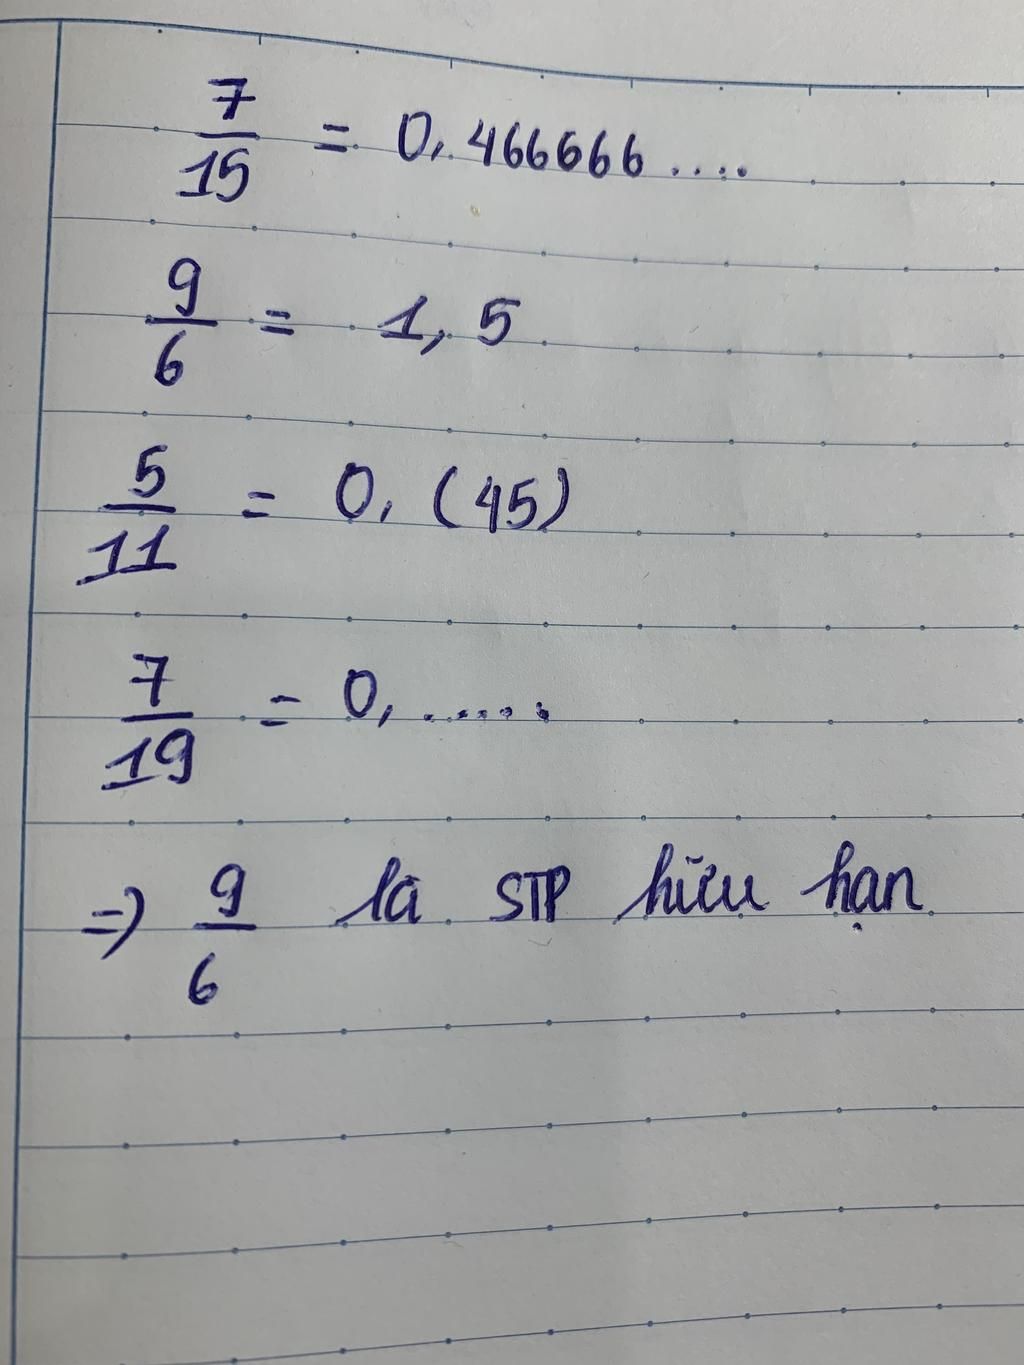 7/15 = 0,466666....
9/6 = 1,5
5/11 = 0,(45)
7/19 = 0,......
=> 9/6 là STP hữu hạn